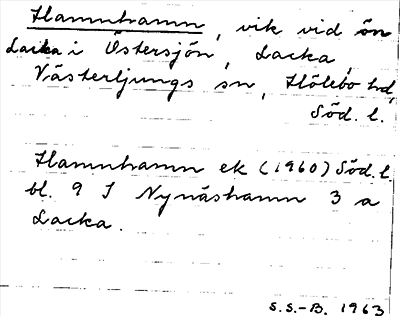 Hamnhamn, vik vid ön
Lacka i Östersjön, Lacka,
Västerljungs sn, Hölebo hd,
Söd. l.
Hamnhamn ek (1960) Söd. l.
bl. 9 I Nynäshamn 3 a
Lacka.
S.S.-B. 1963